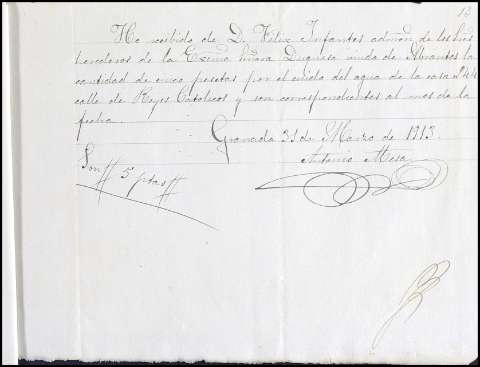 13
He recibido de D. Felix Infantes admor. de los
herederos de la Excma Señora Duquesa viuda de Abrantes la
cantidad de cinco pesetas por el cuido del agua de la casa nº
calle de Reyes Católicos y son correspondientes al mes de la
fecha.
Granada 31 de Marzo de 1913.
Antonio Mesa
Son # 5 ptas #